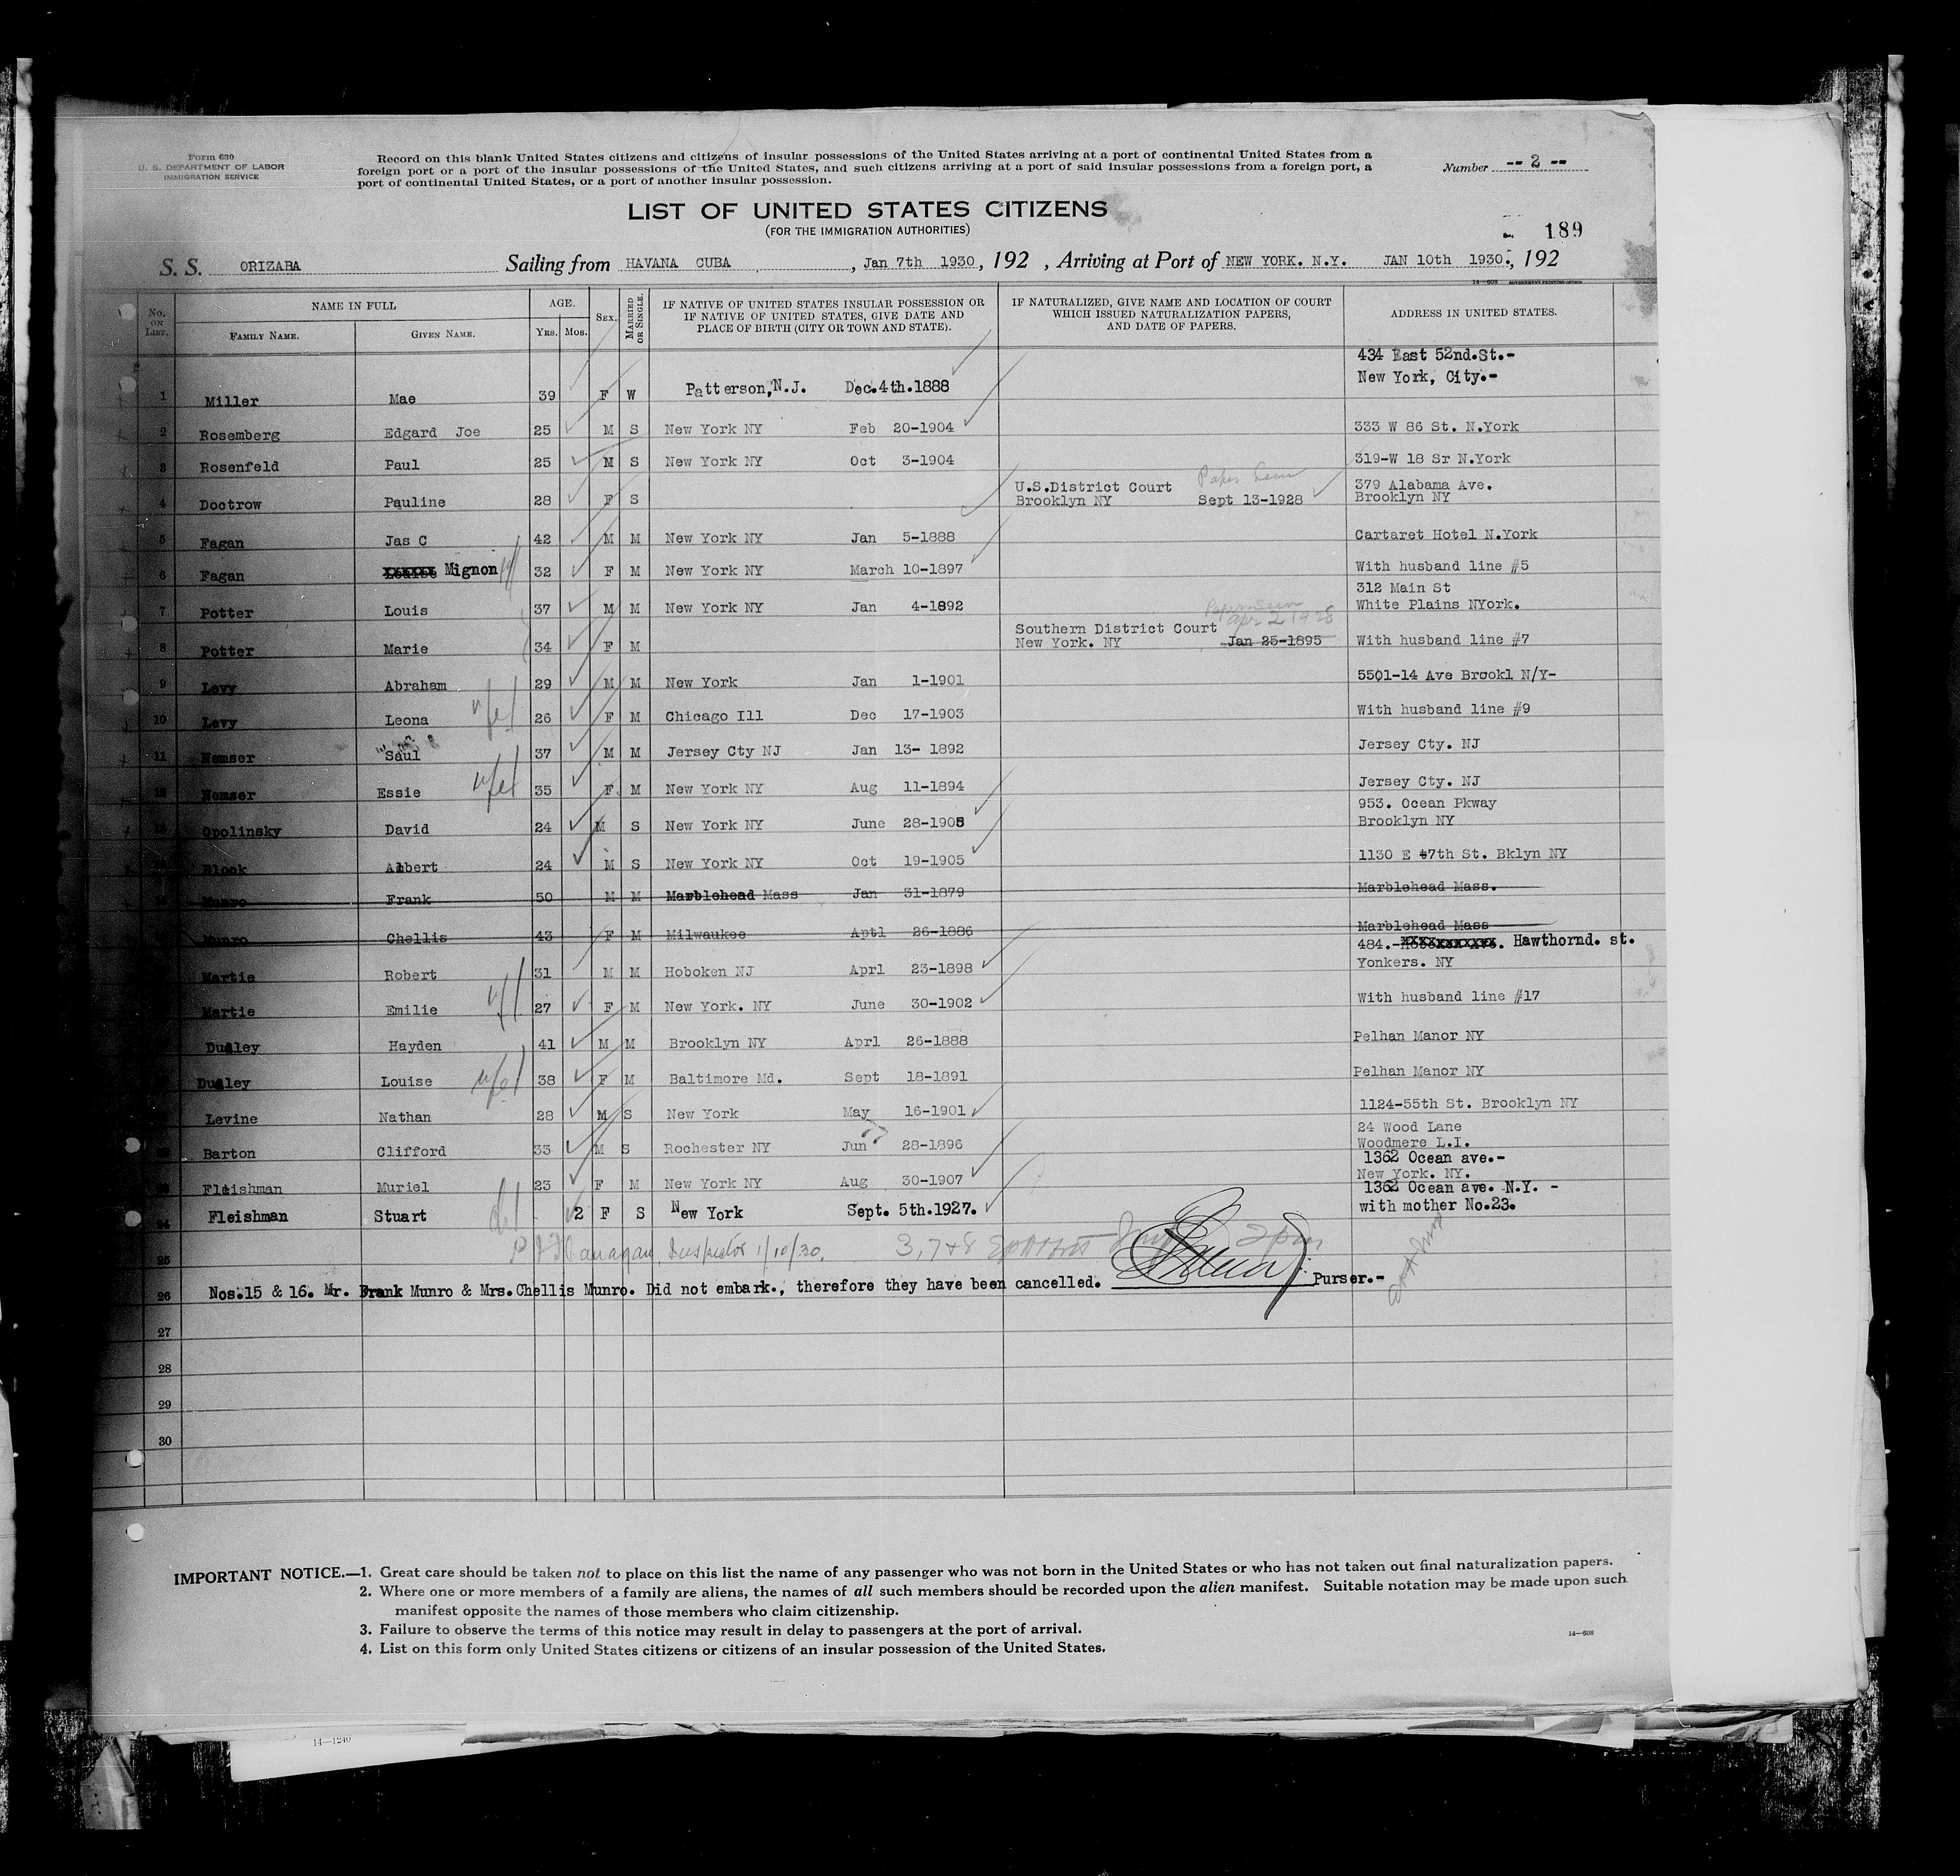 Form 630
U. S. DEPARTMENT OF LABOR
IMMIGRATION SERVICE
Record on this blank United States citizens and citizens of insular possessions of the United States arriving at a port of continental United States from a
foreign port or a port of the insular possessions of the United States, and such citizens arriving at a port of said insular possessions from a foreign port, a
port of continental United States, or a port of another insular possession.
Number -- 2 --
LIST OF UNITED STATES CITIZENS
(FOR THE IMMIGRATION AUTHORITIES)
189
S. S. ORIZABA Sailing from HAVANA CUBA, Jan 7th 1930, 192 , Arriving at Port of NEW YORK. N.Y. JAN 10th 1930., 192
14-608 GOVERNMENT PRINTING OFFICE
No. ON LIST. NAME IN FULL AGE. SEX. MARRIED OR SINGLE. IF NATIVE OF UNITED STATES INSULAR POSSESSION OR IF NATIVE OF UNITED STATES, GIVE DATE AND PLACE OF BIRTH (CITY OR TOWN AND STATE). IF NATURALIZED, GIVE NAME AND LOCATION OF COURT WHICH ISSUED NATURALIZATION PAPERS, AND DATE OF PAPERS. ADDRESS IN UNITED STATES.
FAMILY NAME. GIVEN NAME. YRS. MOS.
434 East 52nd.St.-
New York, City.-
1 Miller Mae 39 F W Patterson, N.J. Dec.4th.1888
2 Rosemberg Edgard Joe 25 M S New York NY Feb 20-1904 333 W 86 St. N.York
3 Rosenfeld Paul 25 M S New York NY Oct 3-1904 319-W 18 Sr N.York
U.S.District Court 379 Alabama Ave.
4 Doctrow Pauline 28 F S Brooklyn NY Sept 13-1928 Brooklyn NY
5 Fagan Jas C 42 M M New York NY Jan 5-1888 Cartaret Hotel N.York
6 Fagan Mignon 32 F M New York NY March 10-1897 With husband line #5
312 Main St
7 Potter Louis 37 M M New York NY Jan 4-1892 White Plains NYork.
Southern District Court Apr 2 1928
8 Potter Marie 34 F M New York. NY Jan 25-1895 With husband line #7
9 Levy Abraham 29 M M New York Jan 1-1901 5501-14 Ave Brookl N/Y-
10 Levy Leona 26 F M Chicago Ill Dec 17-1903 With husband line #9
11 Nemser Saul 37 M M Jersey Cty NJ Jan 13- 1892 Jersey Cty. NJ
12 Nemser Essie 35 F M New York NY Aug 11-1894 Jersey Cty. NJ
953. Ocean Pkway
13 Opolinsky David 24 M S New York NY June 28-1905 Brooklyn NY
Block Albert 24 M S New York NY Oct 19-1905 1130 E 47th St. Bklyn NY
Munro Frank 50 M M Marblehead Mass Jan 31-1879 Marblehead Mass.
Munro Chellis 43 F M Milwaukee Aptl 26-1886 Marblehead Mass
484.- Hawthornd. st.
Martie Robert 31 M M Hoboken NJ Aprl 23-1898 Yonkers. NY
Martie Emilie 27 F M New York. NY June 30-1902 With husband line #17
Dudley Hayden 41 M M Brooklyn NY Aprl 26-1888 Pelhan Manor NY
Dudley Louise 38 F M Baltimore Md. Sept 18-1891 Pelhan Manor NY
Levine Nathan 28 M S New York May 16-1901 1124-55th St. Brooklyn NY
24 Wood Lane
Barton Clifford 33 M S Rochester NY Jun 28-1896 Woodmere L.I.
1362 Ocean ave.-
Fleishman Muriel 23 F M New York NY Aug 30-1907 New York. NY.
1362 Ocean ave. N.Y. -
24 Fleishman Stuart 2 F S New York Sept. 5th.1927. with mother No.23.
25 Inspector 1/10/30. 3, 7 & 8
26 Nos.15 & 16. Mr. Frank Munro & Mrs.Chellis Munro. Did not embark., therefore they have been cancelled. Purser.-
27
28
29
30
IMPORTANT NOTICE.—1. Great care should be taken not to place on this list the name of any passenger who was not born in the United States or who has not taken out final naturalization papers.
2. Where one or more members of a family are aliens, the names of all such members should be recorded upon the alien manifest. Suitable notation may be made upon such
manifest opposite the names of those members who claim citizenship.
3. Failure to observe the terms of this notice may result in delay to passengers at the port of arrival.
4. List on this form only United States citizens or citizens of an insular possession of the United States.
14-608
14-1240